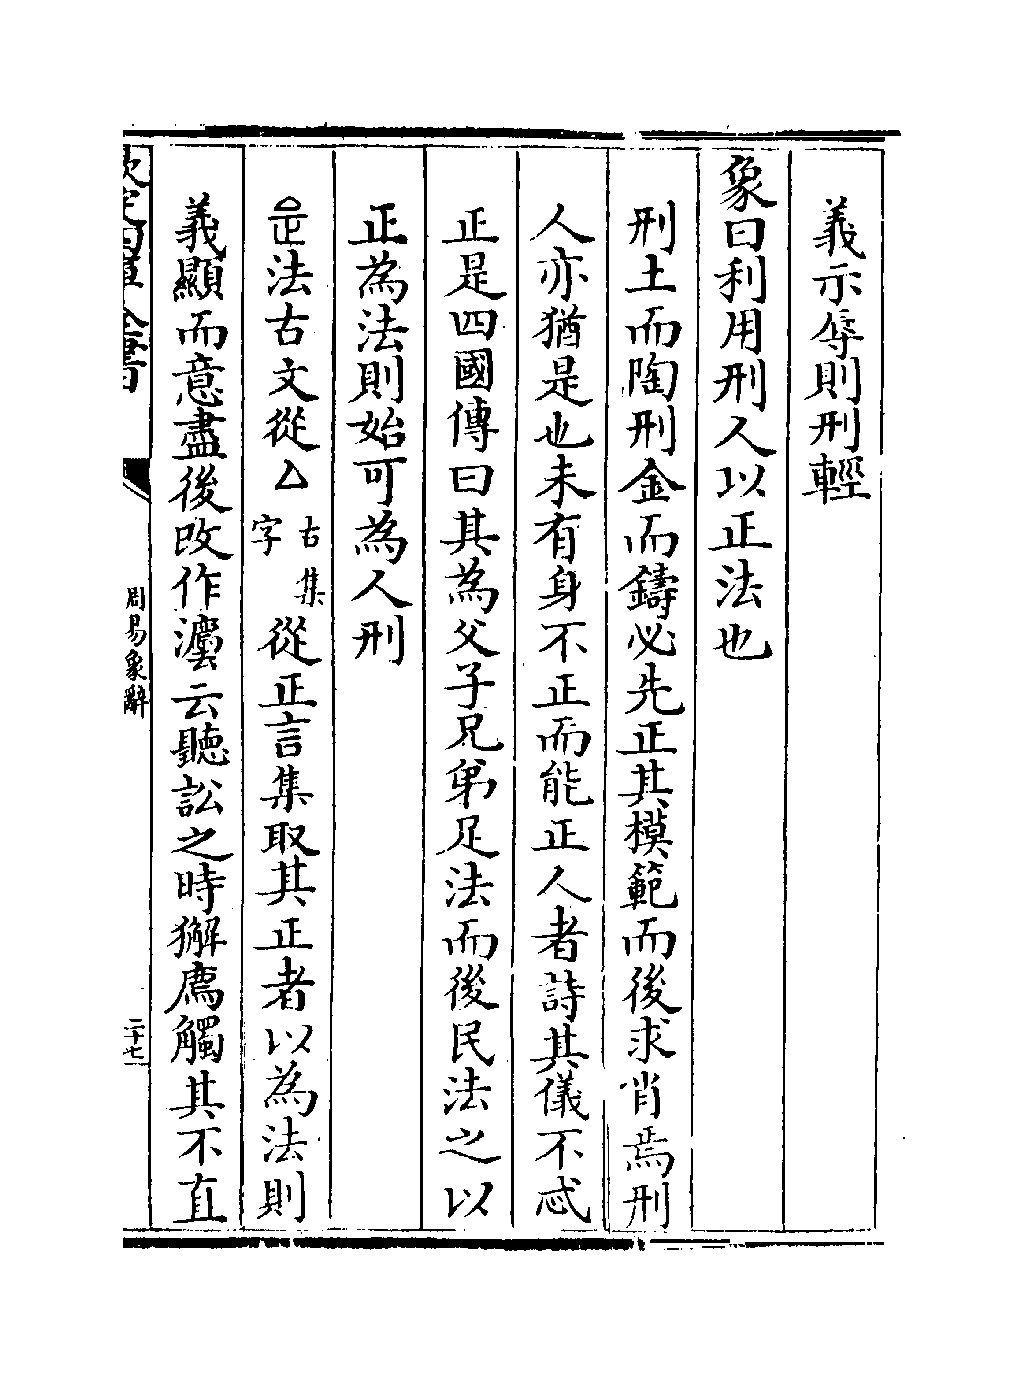 義示辱則刑輕
象曰利用刑人以正法也
刑土而陶刑金而鑄必先正其模範而後求肖焉刑
人亦猶是也未有身不正而能正人者詩其儀不忒
正是四國傳曰其為父子兄弟足法而後民法之以
正為法則始可為人刑
𠍏法古文從亼古集字從正言集取其正者以為法則
義顯而意盡後改作灋云聽訟之時獬廌觸其不直
欽定四庫全書
周易象辭
二十七